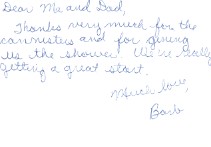 Dear Ma and Dad,
Thanks very much for the
cannisters and for giving
us the shower. We're really
getting a great start.
Much love,
Barb